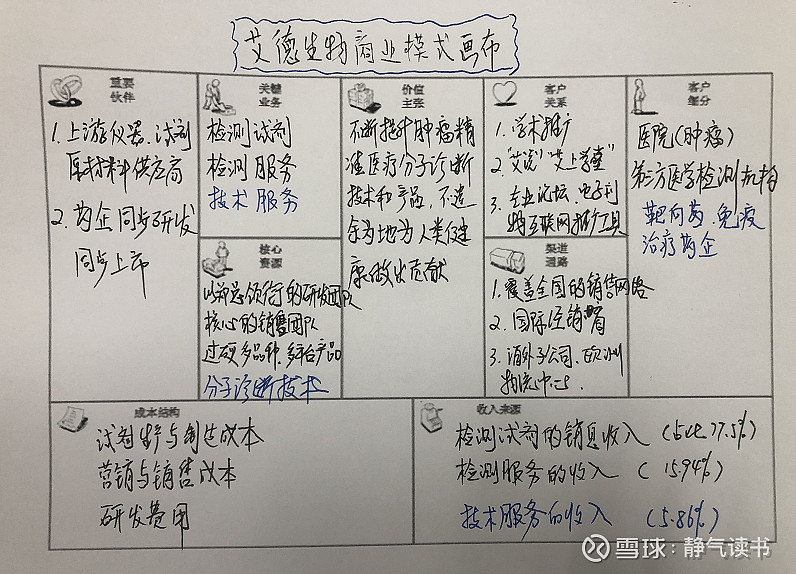 艾德生物商业模式画布
重要
伙伴
1. 上游仪器、试剂
原材料供应商
2. 药企同步研发
同步上市
关键
业务
检测试剂
检测服务
技术服务
核心
资源
领衔的研发团队
核心的销售团队
过硬多品种、多平台产品
分子诊断技术
价值
主张
不断提升肿瘤精
准医疗分子诊断
技术和产品,不遗
余力地为人类健
康做出贡献
客户
关系
1. 学术推广
2. "艾谈" "艾上学堂"
3. 专业论坛、电子刊
物互联网推广工具
渠道
通路
1. 覆盖全国的销售网络
2. 国际经销商
3. 海外子公司、欧洲
物流中心.
客户
细分
医院(肿瘤)
第三方医学检测机构
靶向药、免疫
治疗药企
成本结构
试剂生产与制造成本
营销与销售成本
研发费用
收入来源
检测试剂的销售收入 (5亿 77.5%)
检测服务的收入 (15.94%)
技术服务的收入 (5.86%)
雪球:静气读书